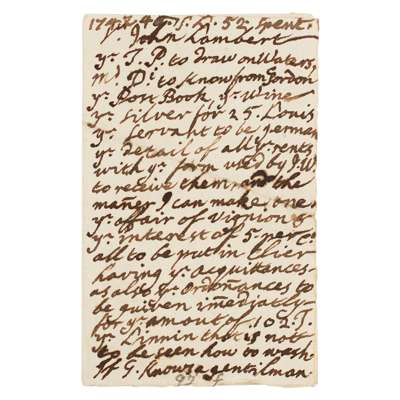 John Lambert
yᵉ T. P. to draw on Waters,
mᵈ Dᵒ to Know from Gordon
yᵉ Post Book, yᵉ Wine
yᵉ silver for 25. Louis
yᵉ servant to be german
yᵉ detail of all yᵉ rents
with yᵉ form used by
to receive them, and the
mañer I can make one
yᵉ affair of &
yᵉ interest of 5. per
all be put in
having yᵉ acquittances
as also yᵉ ordoñances to
be guiven im̃ediatly
for yᵉ amount of 102.
yᵉ Linnin that is not
to be seen how to wash
If G. Knows a gentilman